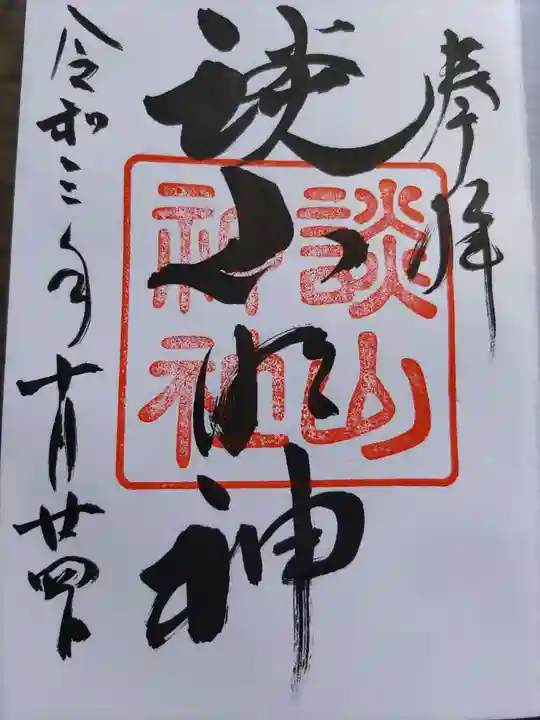 奉拝
談山明神
談山神社
令和三年十月廿四日